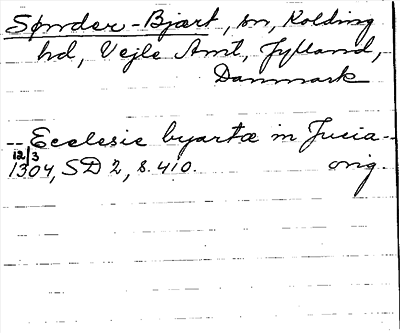 Sønder-Bjært, sn, Kolding
hd, Vejle Amt, Jylland,
Danmark
-- Ecclesie byartæ in Jucia --
12/3
1304, SD 2, s. 410. orig.